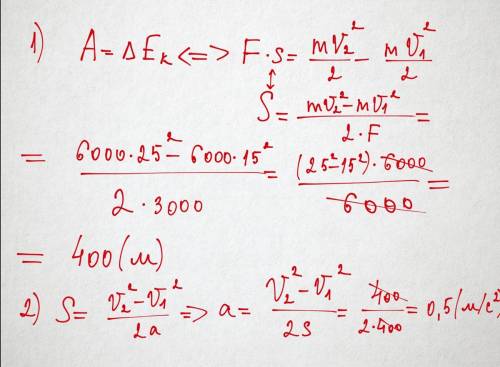 1) A = ΔEк <=> F·s = mV₂²/2 - mV₁²/2
↕
S = (mV₂² - mV₁²)/(2·F) =
= (6000·25² - 6000·15²)/(2·3000) = ((25²-15²)·6000)/6000 =
= 400(м)
2) S = (V₂²-V₁²)/2a => a = (V₂²-V₁²)/2s = 400/(2·400) = 0,5(м/с²)